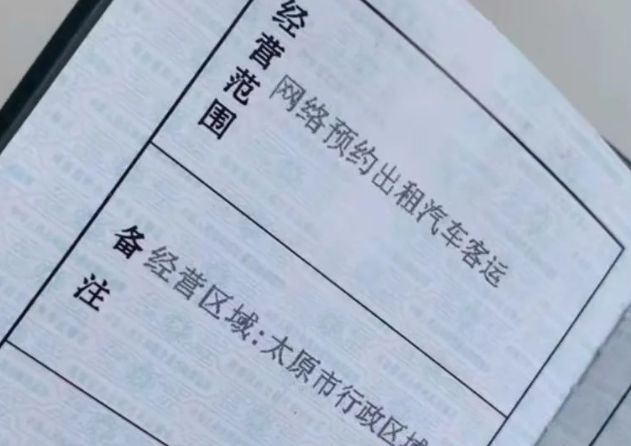 经营范围
网络预约出租汽车客运
备注
经营区域:太原市行政区域